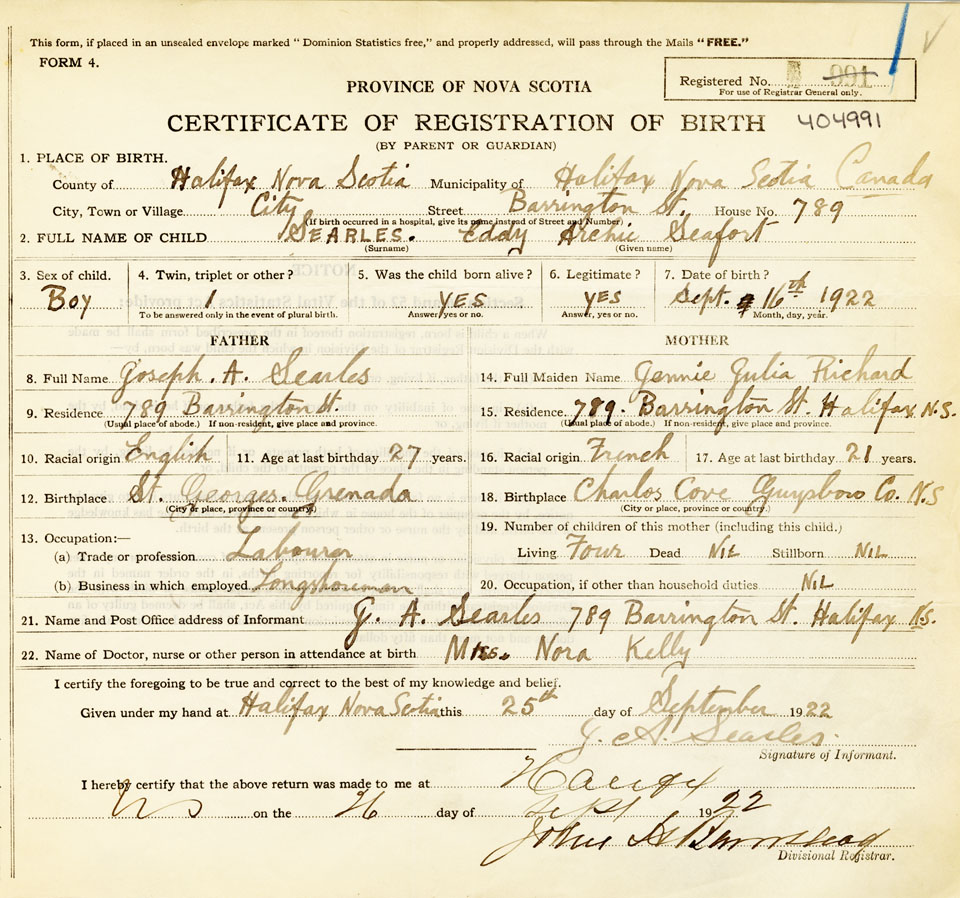 This form, if placed in an unsealed envelope marked "Dominion Statistics free," and properly addressed, will pass through the Mails "FREE."
FORM 4.
Registered No. 991
For use of Registrar General only.
PROVINCE OF NOVA SCOTIA
CERTIFICATE OF REGISTRATION OF BIRTH 404991
(BY PARENT OR GUARDIAN)
1. PLACE OF BIRTH.
County of Halifax Nova Scotia Municipality of Halifax Nova Scotia Canada
City, Town or Village City Street Barrington St. House No. 789
(If birth occurred in a hospital, give its name instead of Street and Number)
2. FULL NAME OF CHILD SEARLES. Eddy Archie Seafort
(Surname) (Given name)
3. Sex of child. 4. Twin, triplet or other? 5. Was the child born alive? 6. Legitimate? 7. Date of birth?
Boy 1 YES YES Sept. 16th 1922
To be answered only in the event of plural birth. Answer, yes or no. Answer, yes or no. Month, day, year.
FATHER MOTHER
8. Full Name Joseph. A. Searles 14. Full Maiden Name Jennie Julia Richard
9. Residence 789 Barrington St. 15. Residence. 789. Barrington St. Halifax N.S.
(Usual place of abode.) If non-resident, give place and province. (Usual place of abode.) If non-resident, give place and province.
10. Racial origin English 11. Age at last birthday 27 years. 16. Racial origin French 17. Age at last birthday 21 years.
12. Birthplace St. Georges. Grenada 18. Birthplace Charlos Cove Guysboro Co. N.S
(City or place, province or country) (City or place, province or country.)
13. Occupation:— 19. Number of children of this mother (including this child.)
(a) Trade or profession Labourer Living Four Dead NIL Stillborn NIL
(b) Business in which employed Longshoreman 20. Occupation, if other than household duties NIL
21. Name and Post Office address of Informant J. A. Searles 789 Barrington St. Halifax N.S.
22. Name of Doctor, nurse or other person in attendance at birth Miss. Nora Kelly
I certify the foregoing to be true and correct to the best of my knowledge and belief.
Given under my hand at Halifax Nova Scotia this 25th day of September 1922
J. A. Searles.
Signature of Informant.
I hereby certify that the above return was made to me at Halifax
NS on the 26 day of Sept 1922
John
Divisional Registrar.